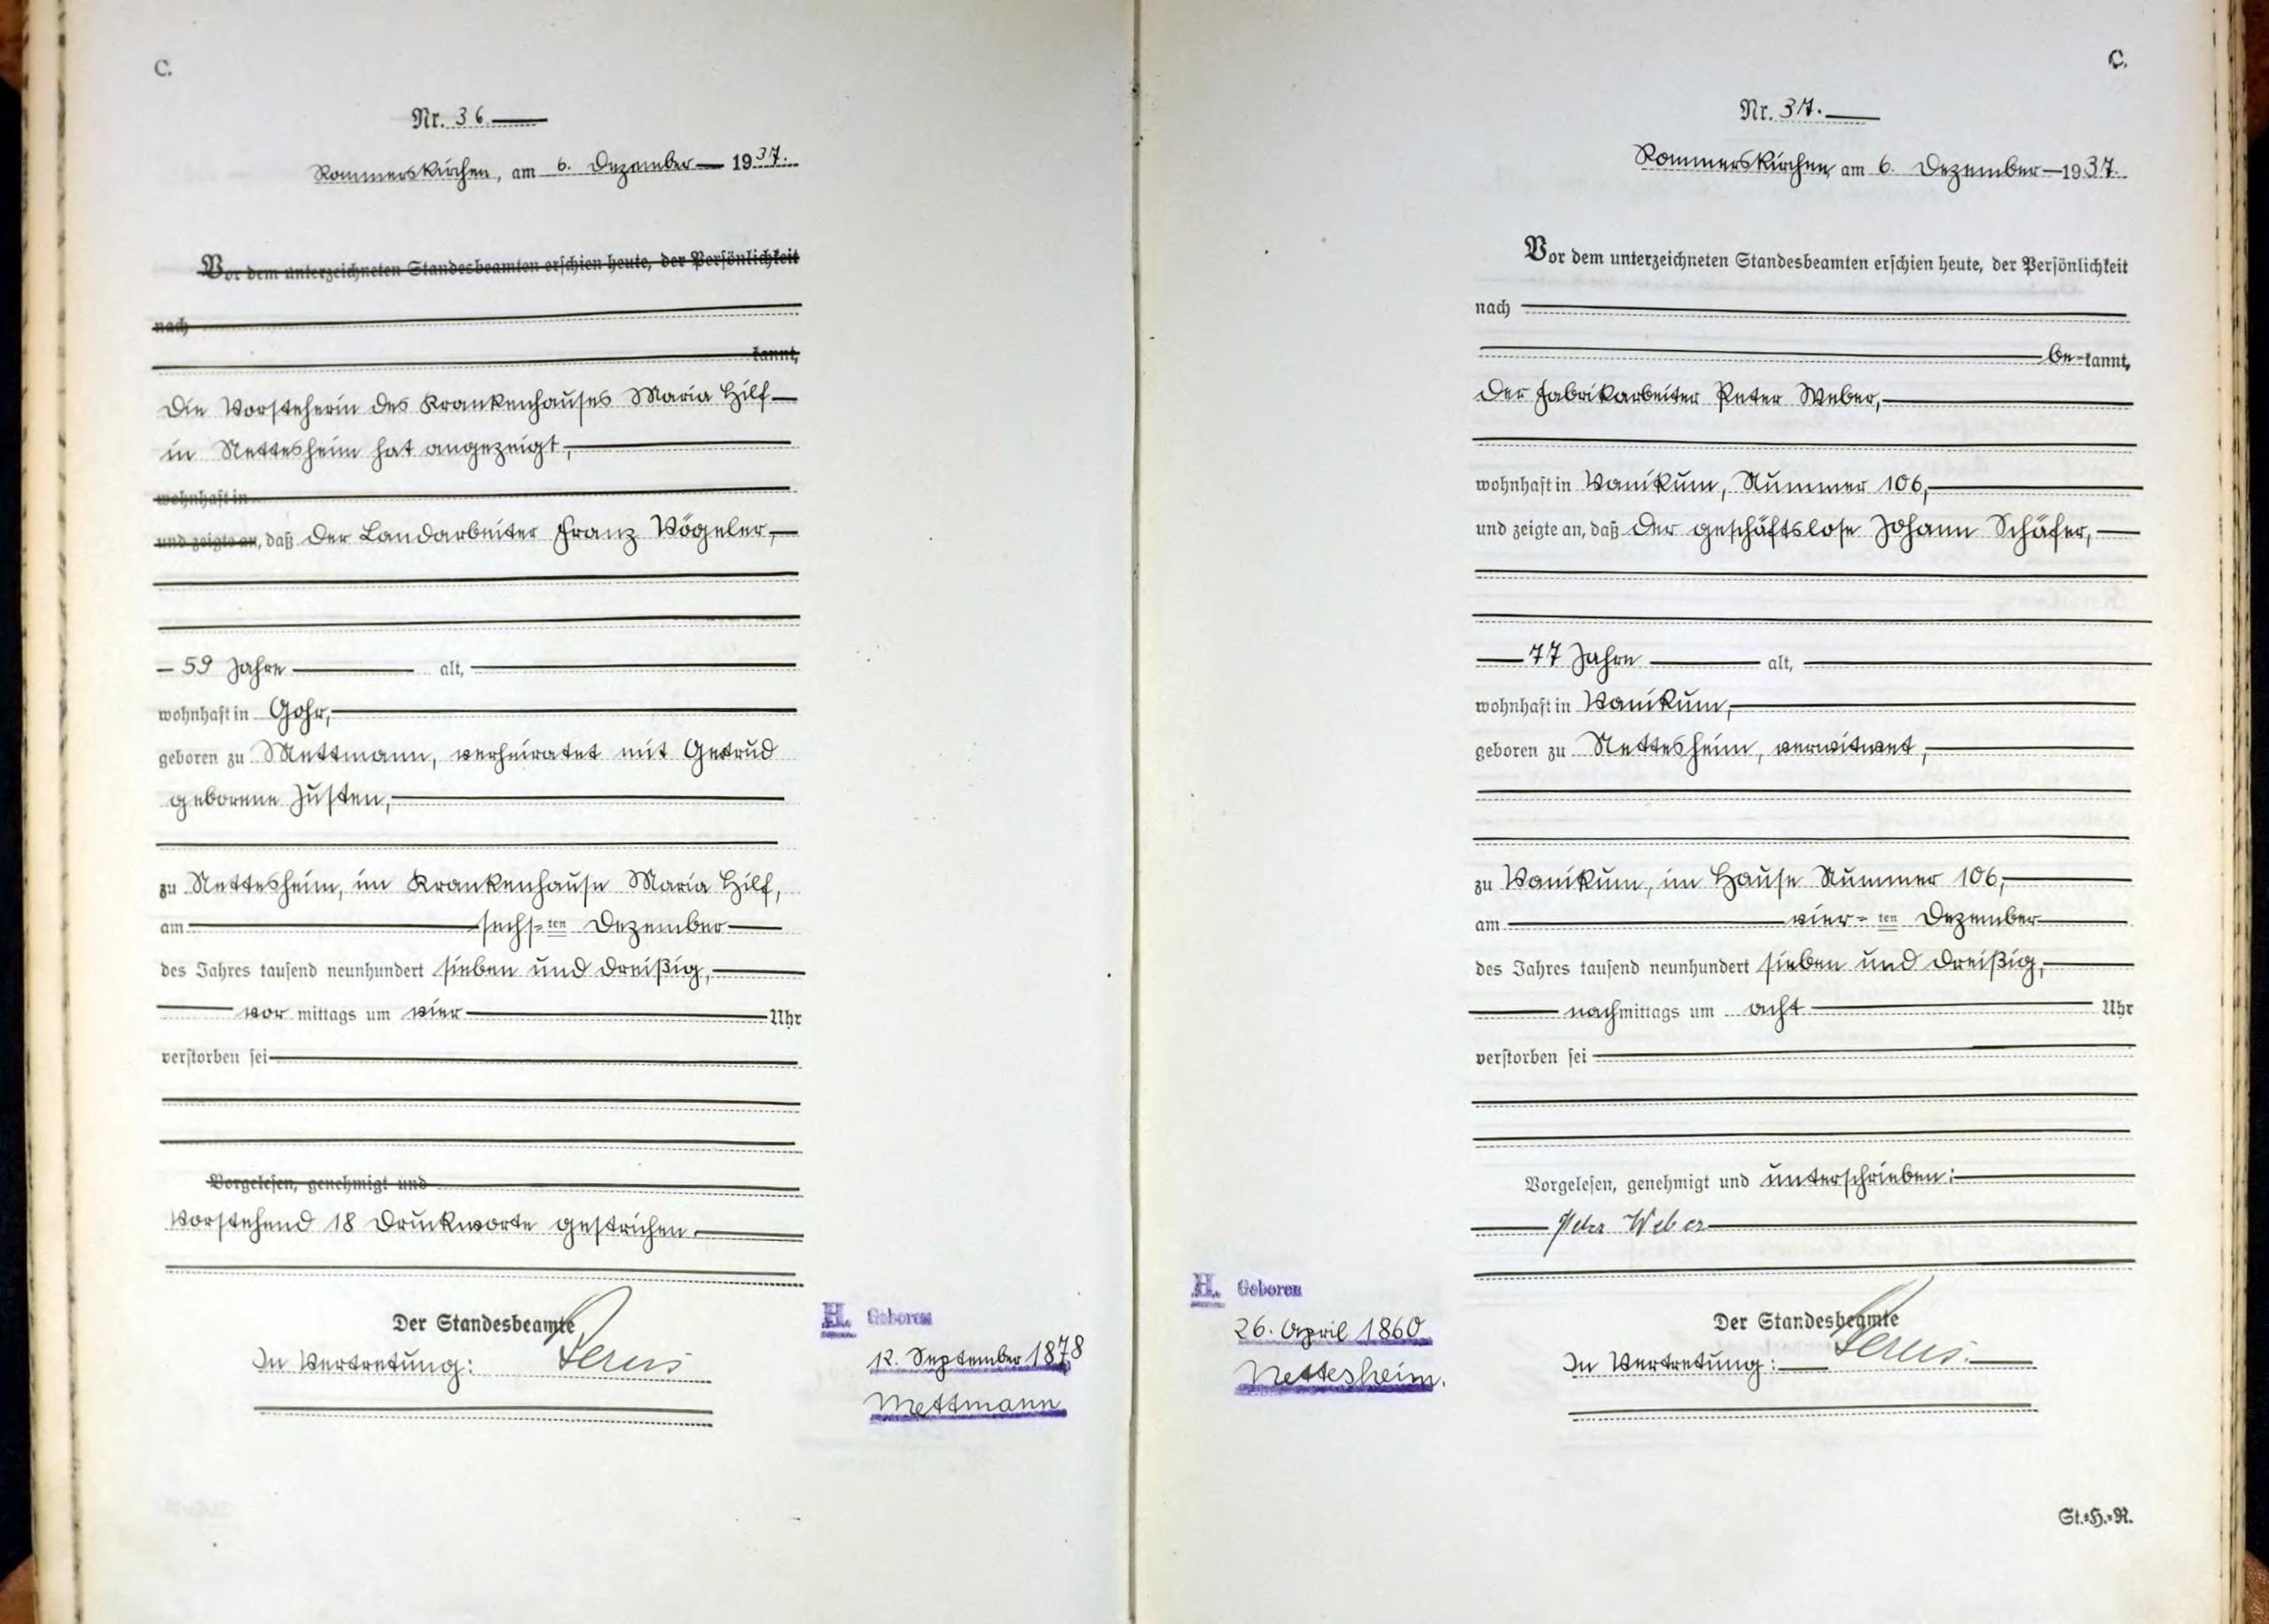 C.
Nr. 36
Rommerskirchen, am 6. Dezember 1937.
Vor dem unterzeichneten Standesbeamten erschien heute, der Persönlichkeit
nach
kannt,
Die Vorsteherin des Krankenhauses Maria Hilf
in Nettesheim hat angezeigt,
wohnhaft in
und zeigte an, daß der Landarbeiter Franz Vögeler,
59 Jahre alt,
wohnhaft in Gohr,
geboren zu Mettmann, verheiratet mit Getrud
geborene Justen,
zu Nettesheim, im Krankenhause Maria Hilf,
am sechs-ten Dezember
des Jahres tausend neunhundert sieben und dreißig,
vor mittags um vier Uhr
verstorben sei
Vorgelesen, genehmigt und
Vorstehend 18 Druckworte gestrichen.
Der Standesbeamte
In Vertretung:
H. Geboren
12. September 1878
Mettmann
C.
Nr. 37.
Rommerskirchen, am 6. Dezember 1937.
Vor dem unterzeichneten Standesbeamten erschien heute, der Persönlichkeit
nach
be-kannt,
der Fabrikarbeiter Peter Weber,
wohnhaft in Vanikum, Nummer 106,
und zeigte an, daß der geschäftslose Johann Schäfer,
77 Jahre alt,
wohnhaft in Vanikum,
geboren zu Nettesheim, verwitwet,
zu Vanikum, im Hause Nummer 106,
am vier-ten Dezember
des Jahres tausend neunhundert sieben und dreißig,
nachmittags um acht Uhr
verstorben sei
Vorgelesen, genehmigt und unterschrieben:
Peter Weber
Der Standesbeamte
In Vertretung:
H. Geboren
26. April 1860
Nettesheim.
St.=H.=R.